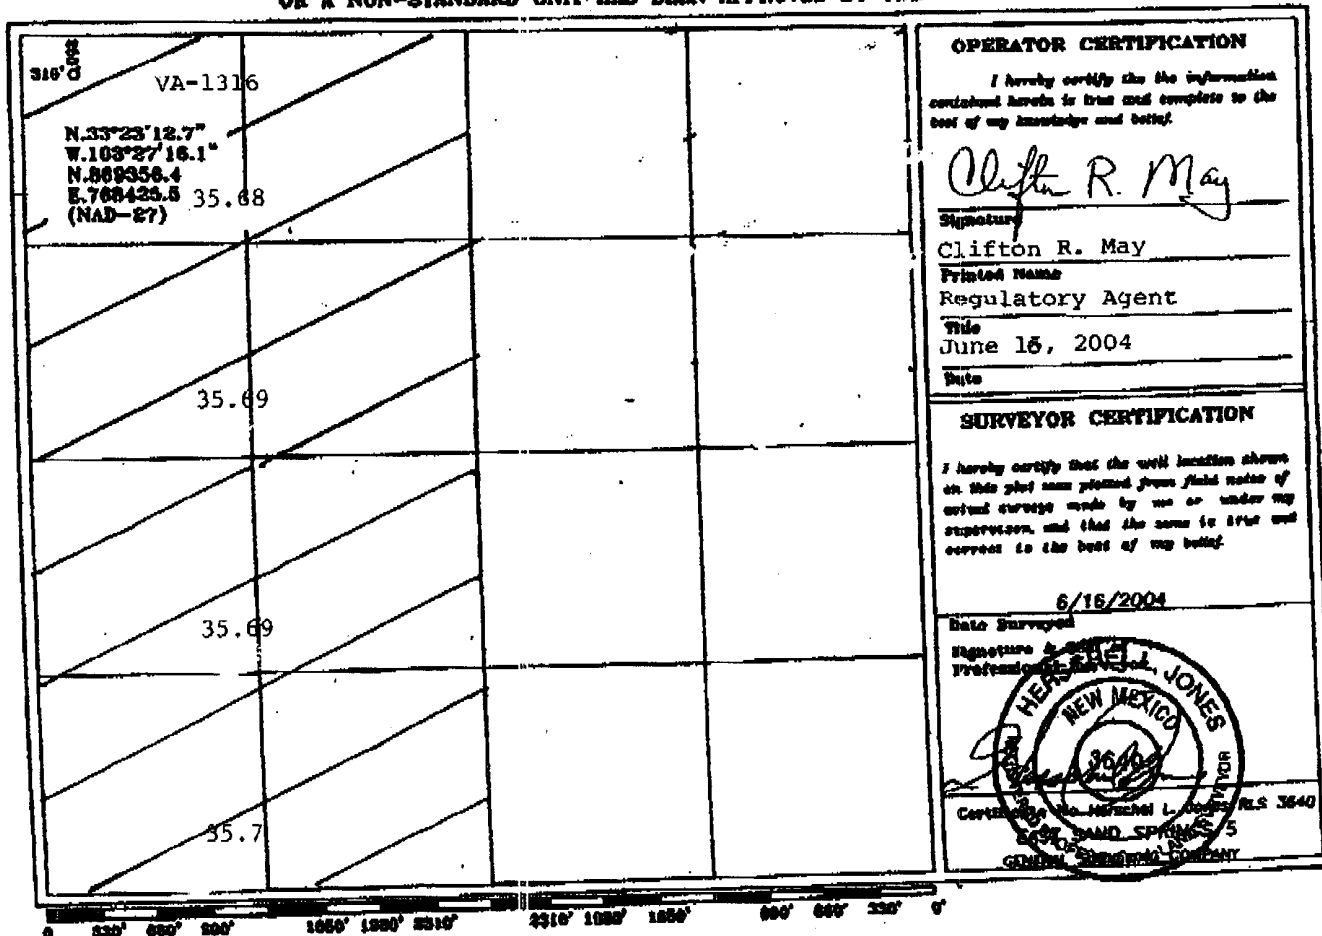 OR A NON-STANDARD UNIT HAS BEEN APPROVED BY THE
310'
VA-1316
N.33°23'12.7"
W.103°27'16.1"
N.869356.4
E.768425.5
(NAD-27)
35.68
35.69
35.69
35.7
0 330' 660' 1650' 1980' 2310' 2310' 1980' 1650' 990' 660' 330' 0'
OPERATOR CERTIFICATION
I hereby certify the the information
contained herein is true and complete to the
best of my knowledge and belief.
Clifton R. May
Signature
Clifton R. May
Printed Name
Regulatory Agent
Title
June 16, 2004
Date
SURVEYOR CERTIFICATION
I hereby certify that the well location shown
on this plat was plotted from field notes of
actual surveys made by me or under my
supervison, and that the same is true and
correct to the best of my belief.
6/16/2004
Date Surveyed
Signature &
Professional
HERSCHEL L. JONES
NEW MEXICO
3640
Certificate No. Herschel L. Jones RLS 3640
EAST SAND SPRINGS 5
GENERAL SURVEYING COMPANY